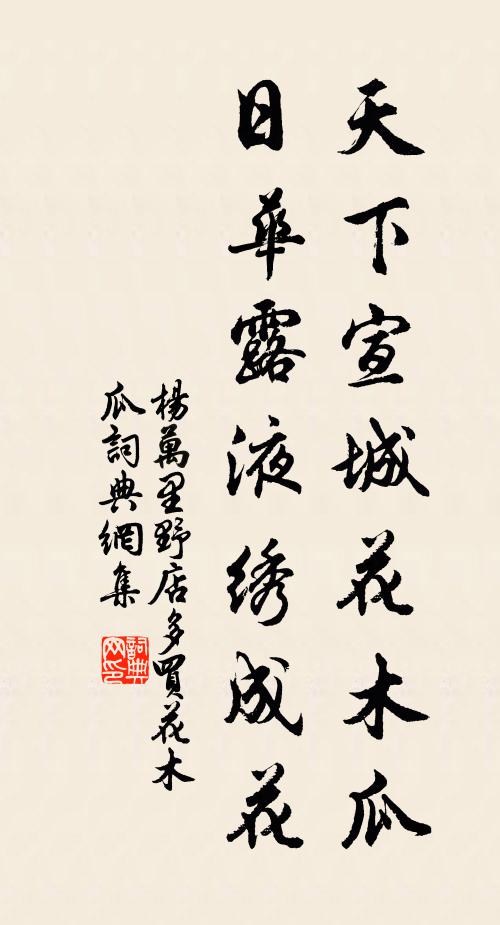 天下宣城花木瓜
日華露液绣成花
楊萬里野店多買花木
瓜詞典網集
詞典
网印